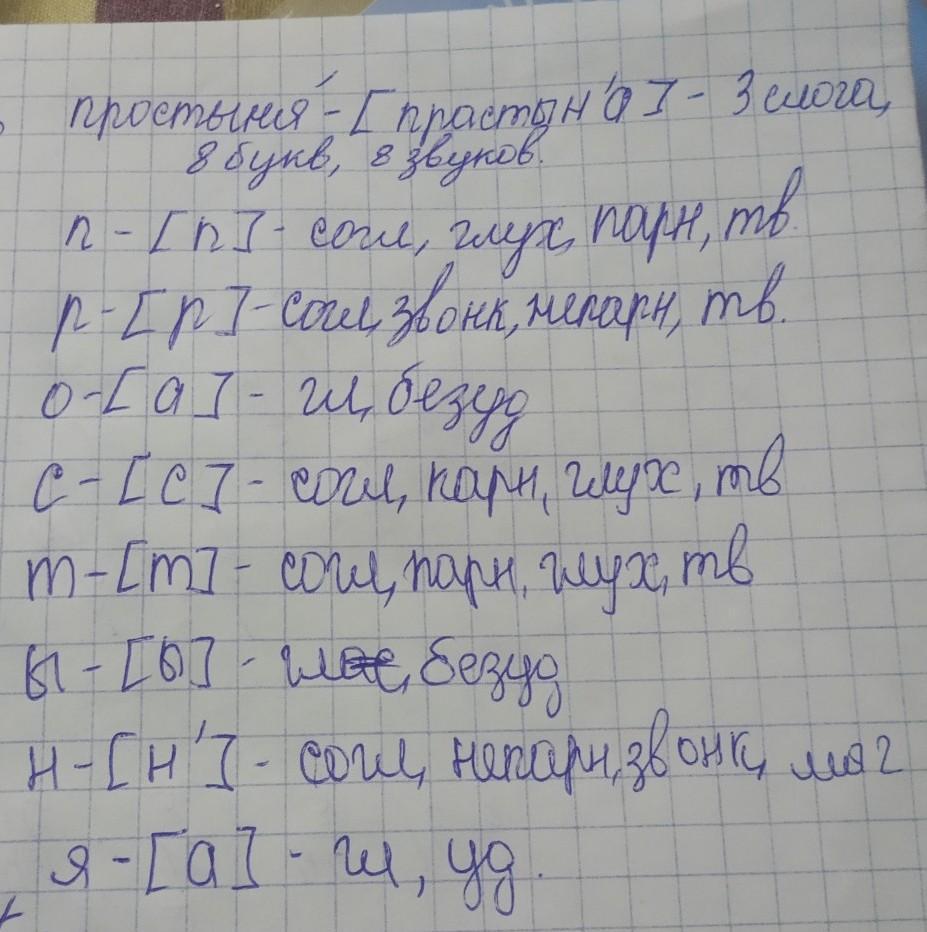 простыня́ - [прастын'а] - 3 слога,
8 букв, 8 звуков.
п - [п] - согл, глух, парн, тв.
р - [р] - согл, звонк, непарн, тв.
о - [а] - гл, безуд
с - [с] - согл, парн, глух, тв
т - [т] - согл, парн, глух, тв
ы - [ы] - гл, безуд
н - [н'] - согл, непарн, звонк, мяг
я - [а] - гл, уд.